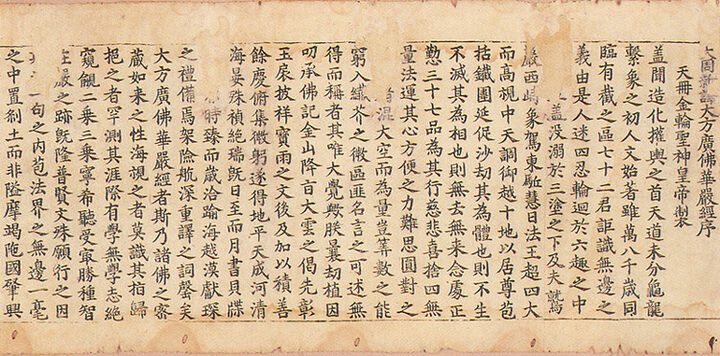 大周新譯大方廣佛華嚴經序
天冊金輪聖神皇帝製
蓋聞造化權輿之首天道未分龜龍
繫象之初人文始著雖萬八千歲同
臨有截之區七十二君詎識無邊之
義由是人迷四忍輪迴於六趣之中
蓋沒溺於三塗之下及夫鷲
巖西峙象駕東驅慧日法王超四大
而高視中天調御越十地以居尊包
括鐵圍延促沙劫其為體也則不生
不滅其為相也則無去無來念處正
勤三十七品為其行慈悲喜捨四無
量法運其心方便之力難思圓對之
混大空而為量豈筭數之能
窮入纖芥之微區匪名言之可述無
得而稱者其唯大覺歟朕曩劫植因
叨承佛記金山降旨大雲之偈先彰
玉扆披祥寶雨之文後及加以積善
餘慶俯集微躬遂得地平天成河清
海晏殊禎絕瑞既日至而月書貝牒
時臻而歲洽踰海越漠獻琛
之禮備焉架險航深重譯之詞罄矣
大方廣佛華嚴經者斯乃諸佛之密
藏如來之性海視之者莫識其指歸
挹之者罕測其涯際有學無學志絕
窺覦二乘三乘寧希聽受最勝種智
莊嚴之跡既隆普賢文殊願行之因
一句之內包法界之無邊一毫
之中置剎土而非隘摩竭陀國肇興